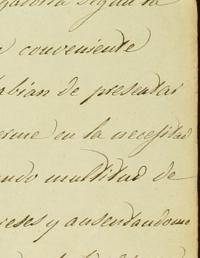 segun la
conveniente
abian de presentar
erme en la necesitad
ndo multitud de
reses y ausentandome